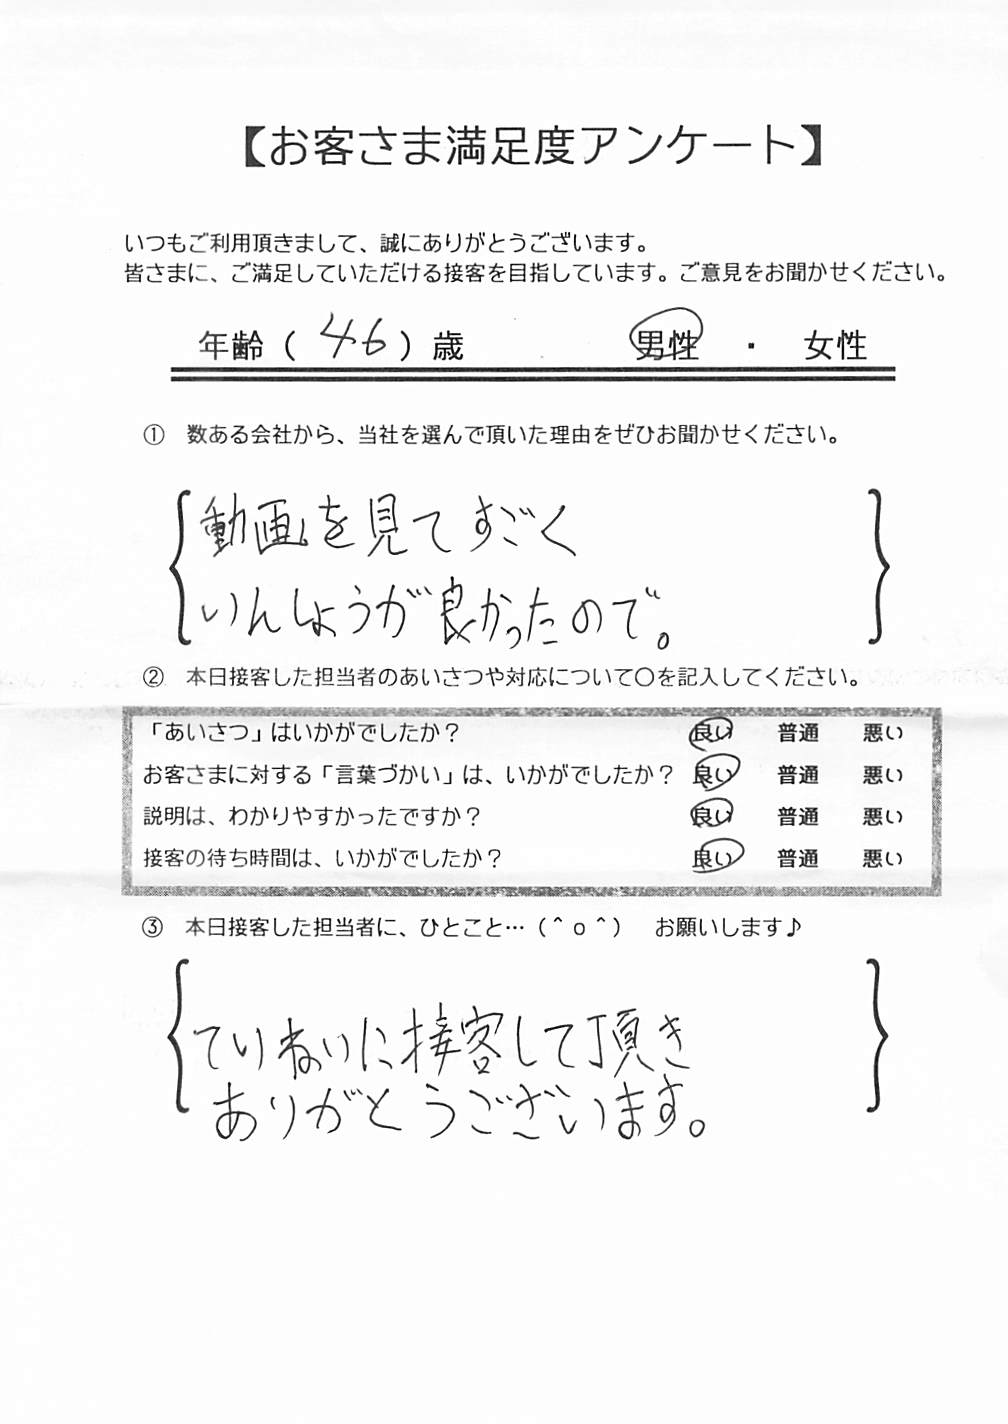 【お客さま満足度アンケート】
いつもご利用頂きまして、誠にありがとうございます。
皆さまに、ご満足していただける接客を目指しています。ご意見をお聞かせください。
年齢（ 46 ）歳　男性　・　女性
①　数ある会社から、当社を選んで頂いた理由をぜひお聞かせください。
動画を見てすごく
いんしょうが良かったので。
②　本日接客した担当者のあいさつや対応について〇を記入してください。
「あいさつ」はいかがでしたか？　良い　普通　悪い
お客さまに対する「言葉づかい」は、いかがでしたか？　良い　普通　悪い
説明は、わかりやすかったですか？　良い　普通　悪い
接客の待ち時間は、いかがでしたか？　良い　普通　悪い
③　本日接客した担当者に、ひとこと…（＾ｏ＾）　お願いします♪
ていねいに接客して頂き
ありがとうございます。